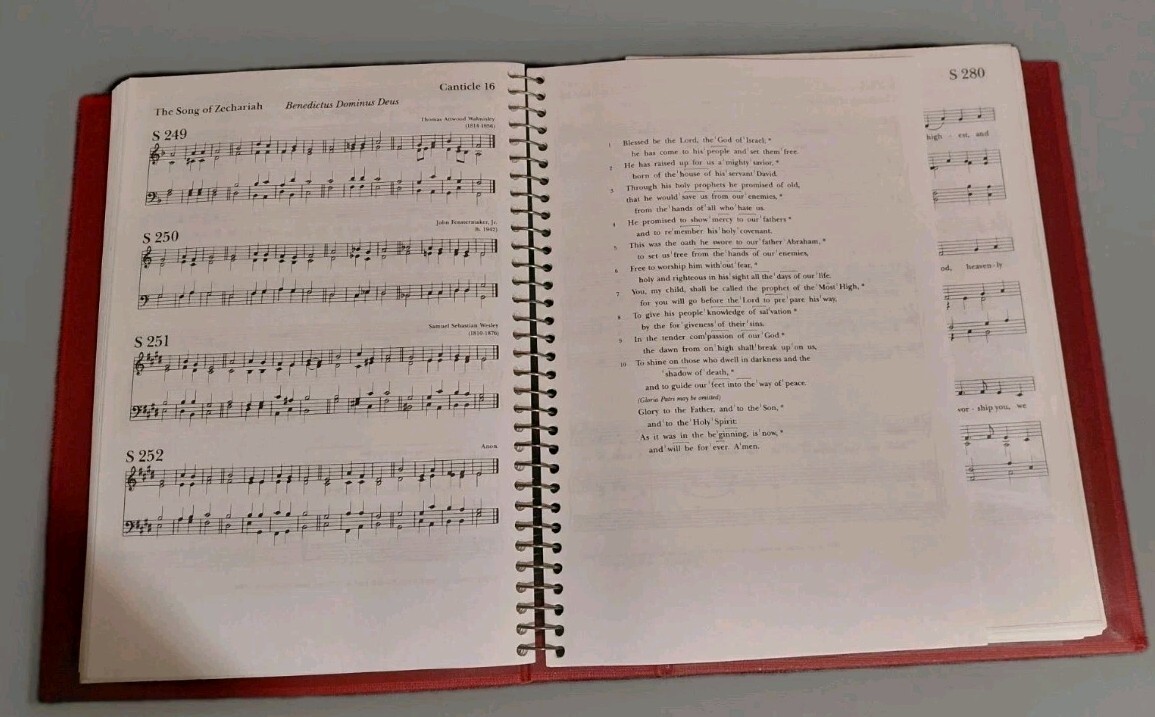 Canticle 16
The Song of Zechariah Benedictus Dominus Deus
S 249
Thomas Attwood Walmisley
(1814-1856)
S 250
John Fenstermaker, Jr.
(b. 1942)
S 251
Samuel Sebastian Wesley
(1810-1876)
S 252
Anon
1 Blessed be the Lord, the ' God of ' Israel; *
he has come to his ' people and ' set them ' free.
2 He has raised up for us a ' mighty ' savior, *
born of the ' house of his ' servant ' David.
3 Through his holy prophets he promised of old,
that he would ' save us from our ' enemies, *
from the ' hands of ' all who ' hate us.
4 He promised to show ' mercy to our ' fathers *
and to re ' member his ' holy ' covenant.
5 This was the oath he swore to our ' father ' Abraham, *
to set us ' free from the ' hands of our ' enemies,
6 Free to worship him with ' out ' fear, *
holy and righteous in his ' sight all the ' days of our ' life.
7 You, my child, shall be called the prophet of the ' Most ' High, *
for you will go before the ' Lord to pre ' pare his ' way,
8 To give his people ' knowledge of sal ' vation *
by the for ' giveness of ' their ' sins.
9 In the tender com ' passion of our ' God *
the dawn from on ' high shall ' break up ' on us,
10 To shine on those who dwell in darkness and the
' shadow of ' death, *
and to guide our ' feet into the ' way of ' peace.
(Gloria Patri may be omitted)
Glory to the Father, and ' to the ' Son, *
and ' to the ' Holy ' Spirit:
As it was in the be ' ginning, is ' now, *
and ' will be for ' ever. A ' men.
S 280
high - est, and
od, heaven-ly
wor - ship you, we